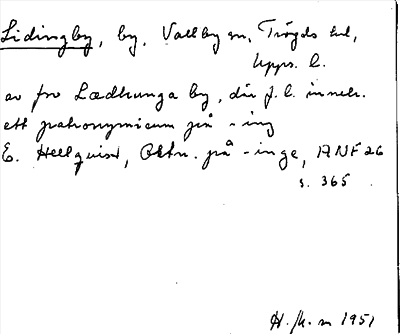 Lidingby, by, Vallby sn, Trögds hd,
Upps. l.
av fsv Lædhunga by, där f. l. inneh.
ett patronymicum på -ing
E. Hellquist, Ortn. på -inge, ANF 26
s. 365
1951